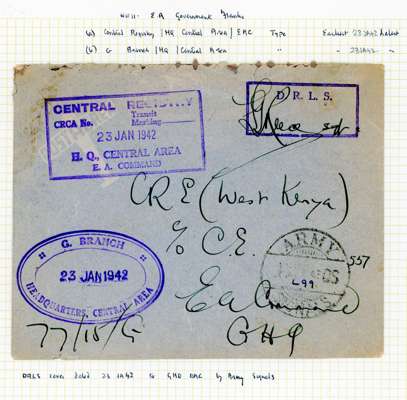 EA Government Branches
(a) Central Registry / HQ Central Area / EAC Type Earliest 23 JA42 Latest
(b) G Branch / HQ / Central Area " " 23JA42 "
CENTRAL REGISTRY
CRCA No. Transit Marking
23 JAN 1942
H. Q., CENTRAL AREA
E. A. COMMAND
D. R. L. S.
CRE (West Kenya)
% C.E.
G. BRANCH
23 JAN 1942
HEADQUARTERS, CENTRAL AREA
ARMY
557
L99
SIGNALS
EA Command
GHQ
77/15/G
DRLS cover dated 23 JA 42 to GHQ EAC by Army Signals